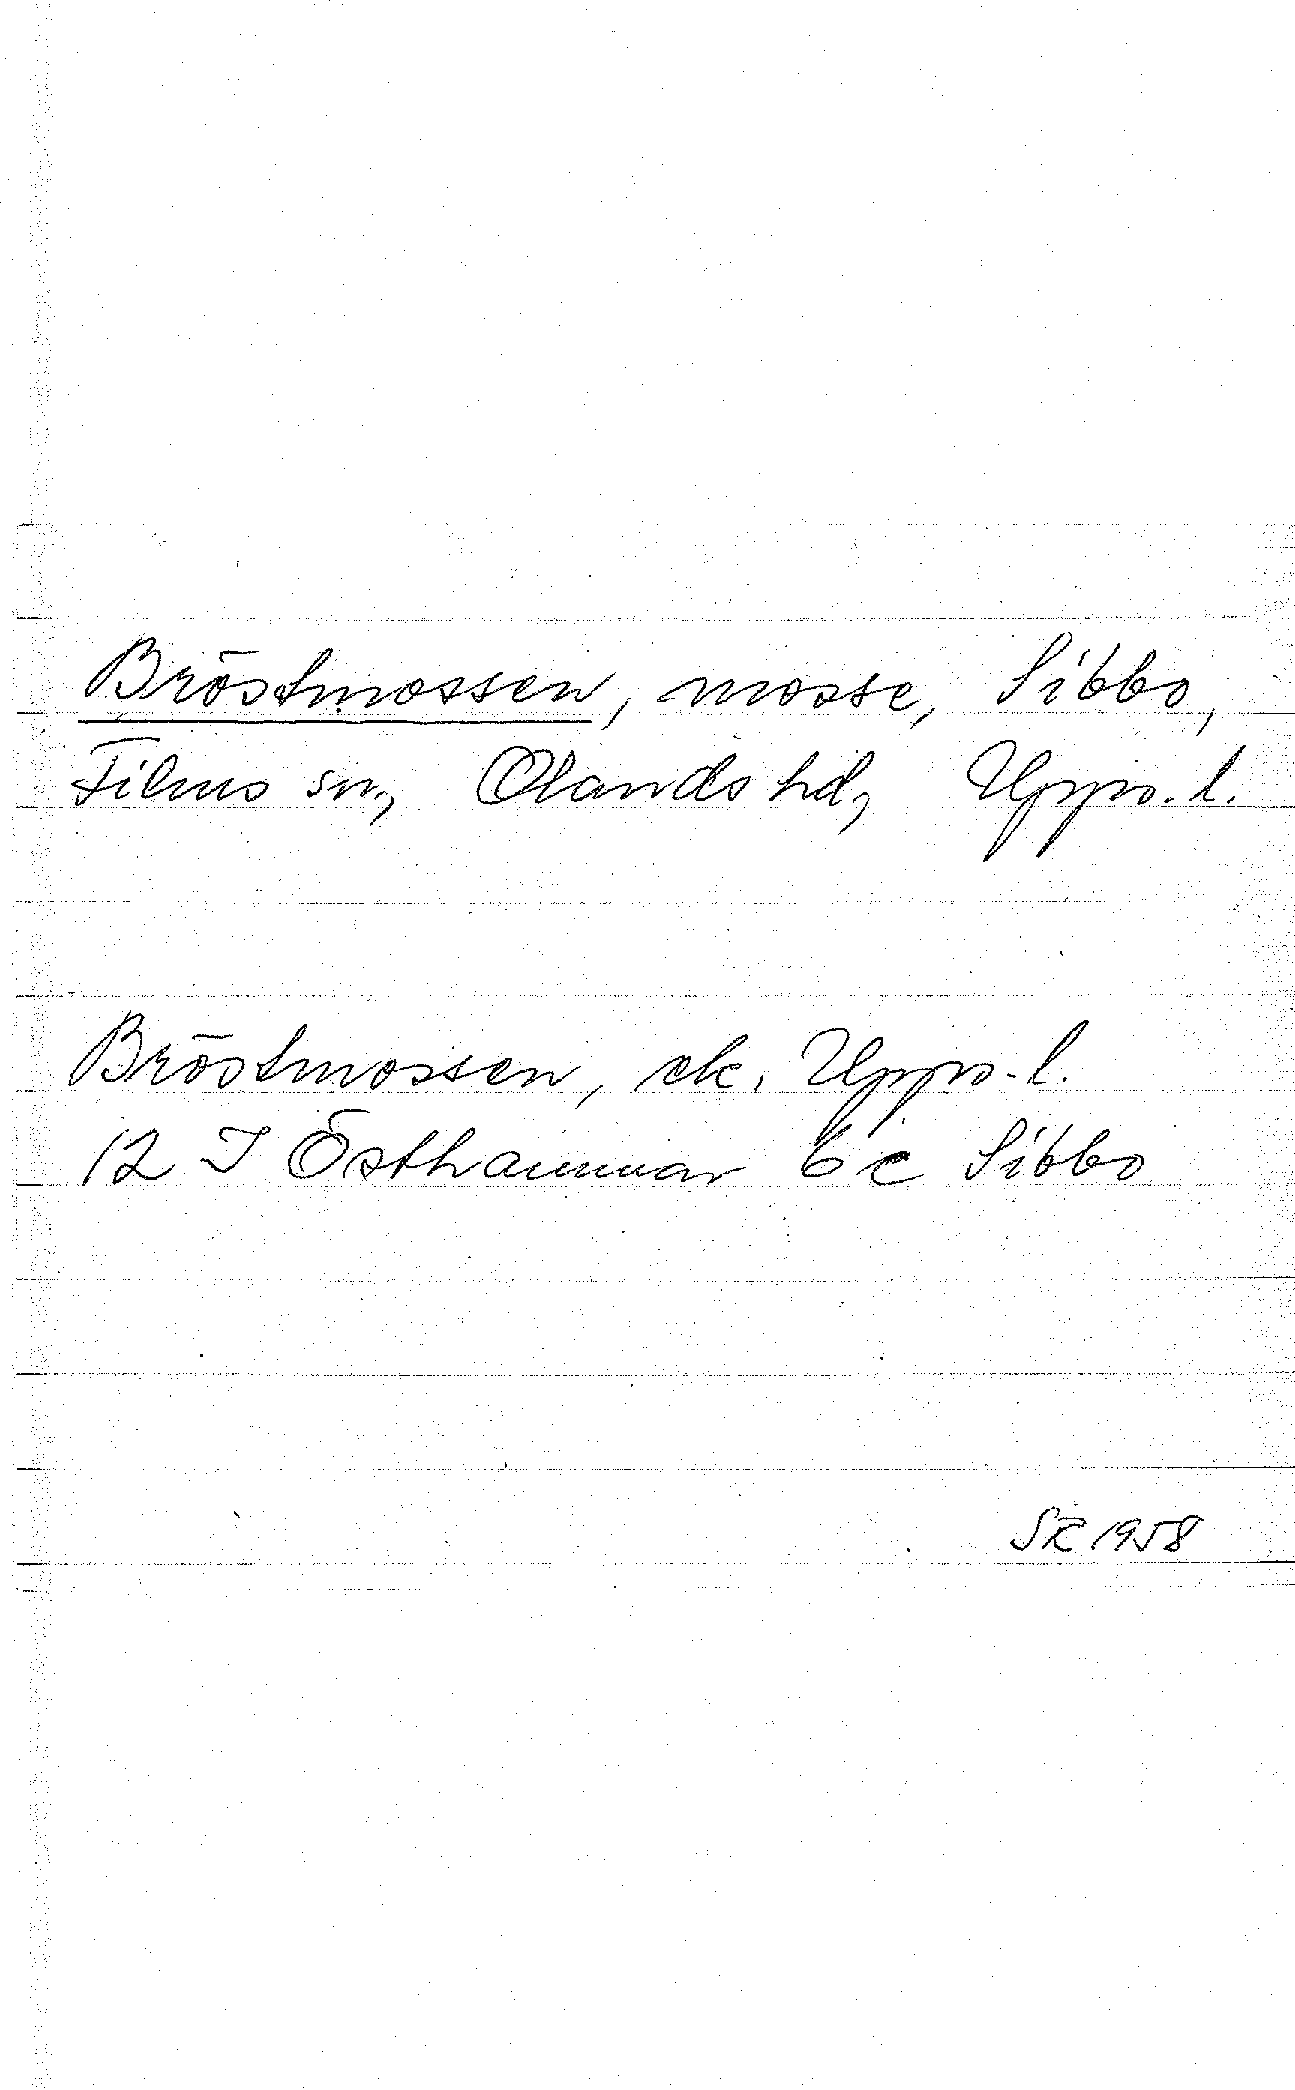 Bröstmossen, mosse, Sibbo,
Films sn, Olands hd, Upps. l.
Bröstmossen, ek. Upps. l.
12 I Östhammar 6 c Sibbo
SR 1958